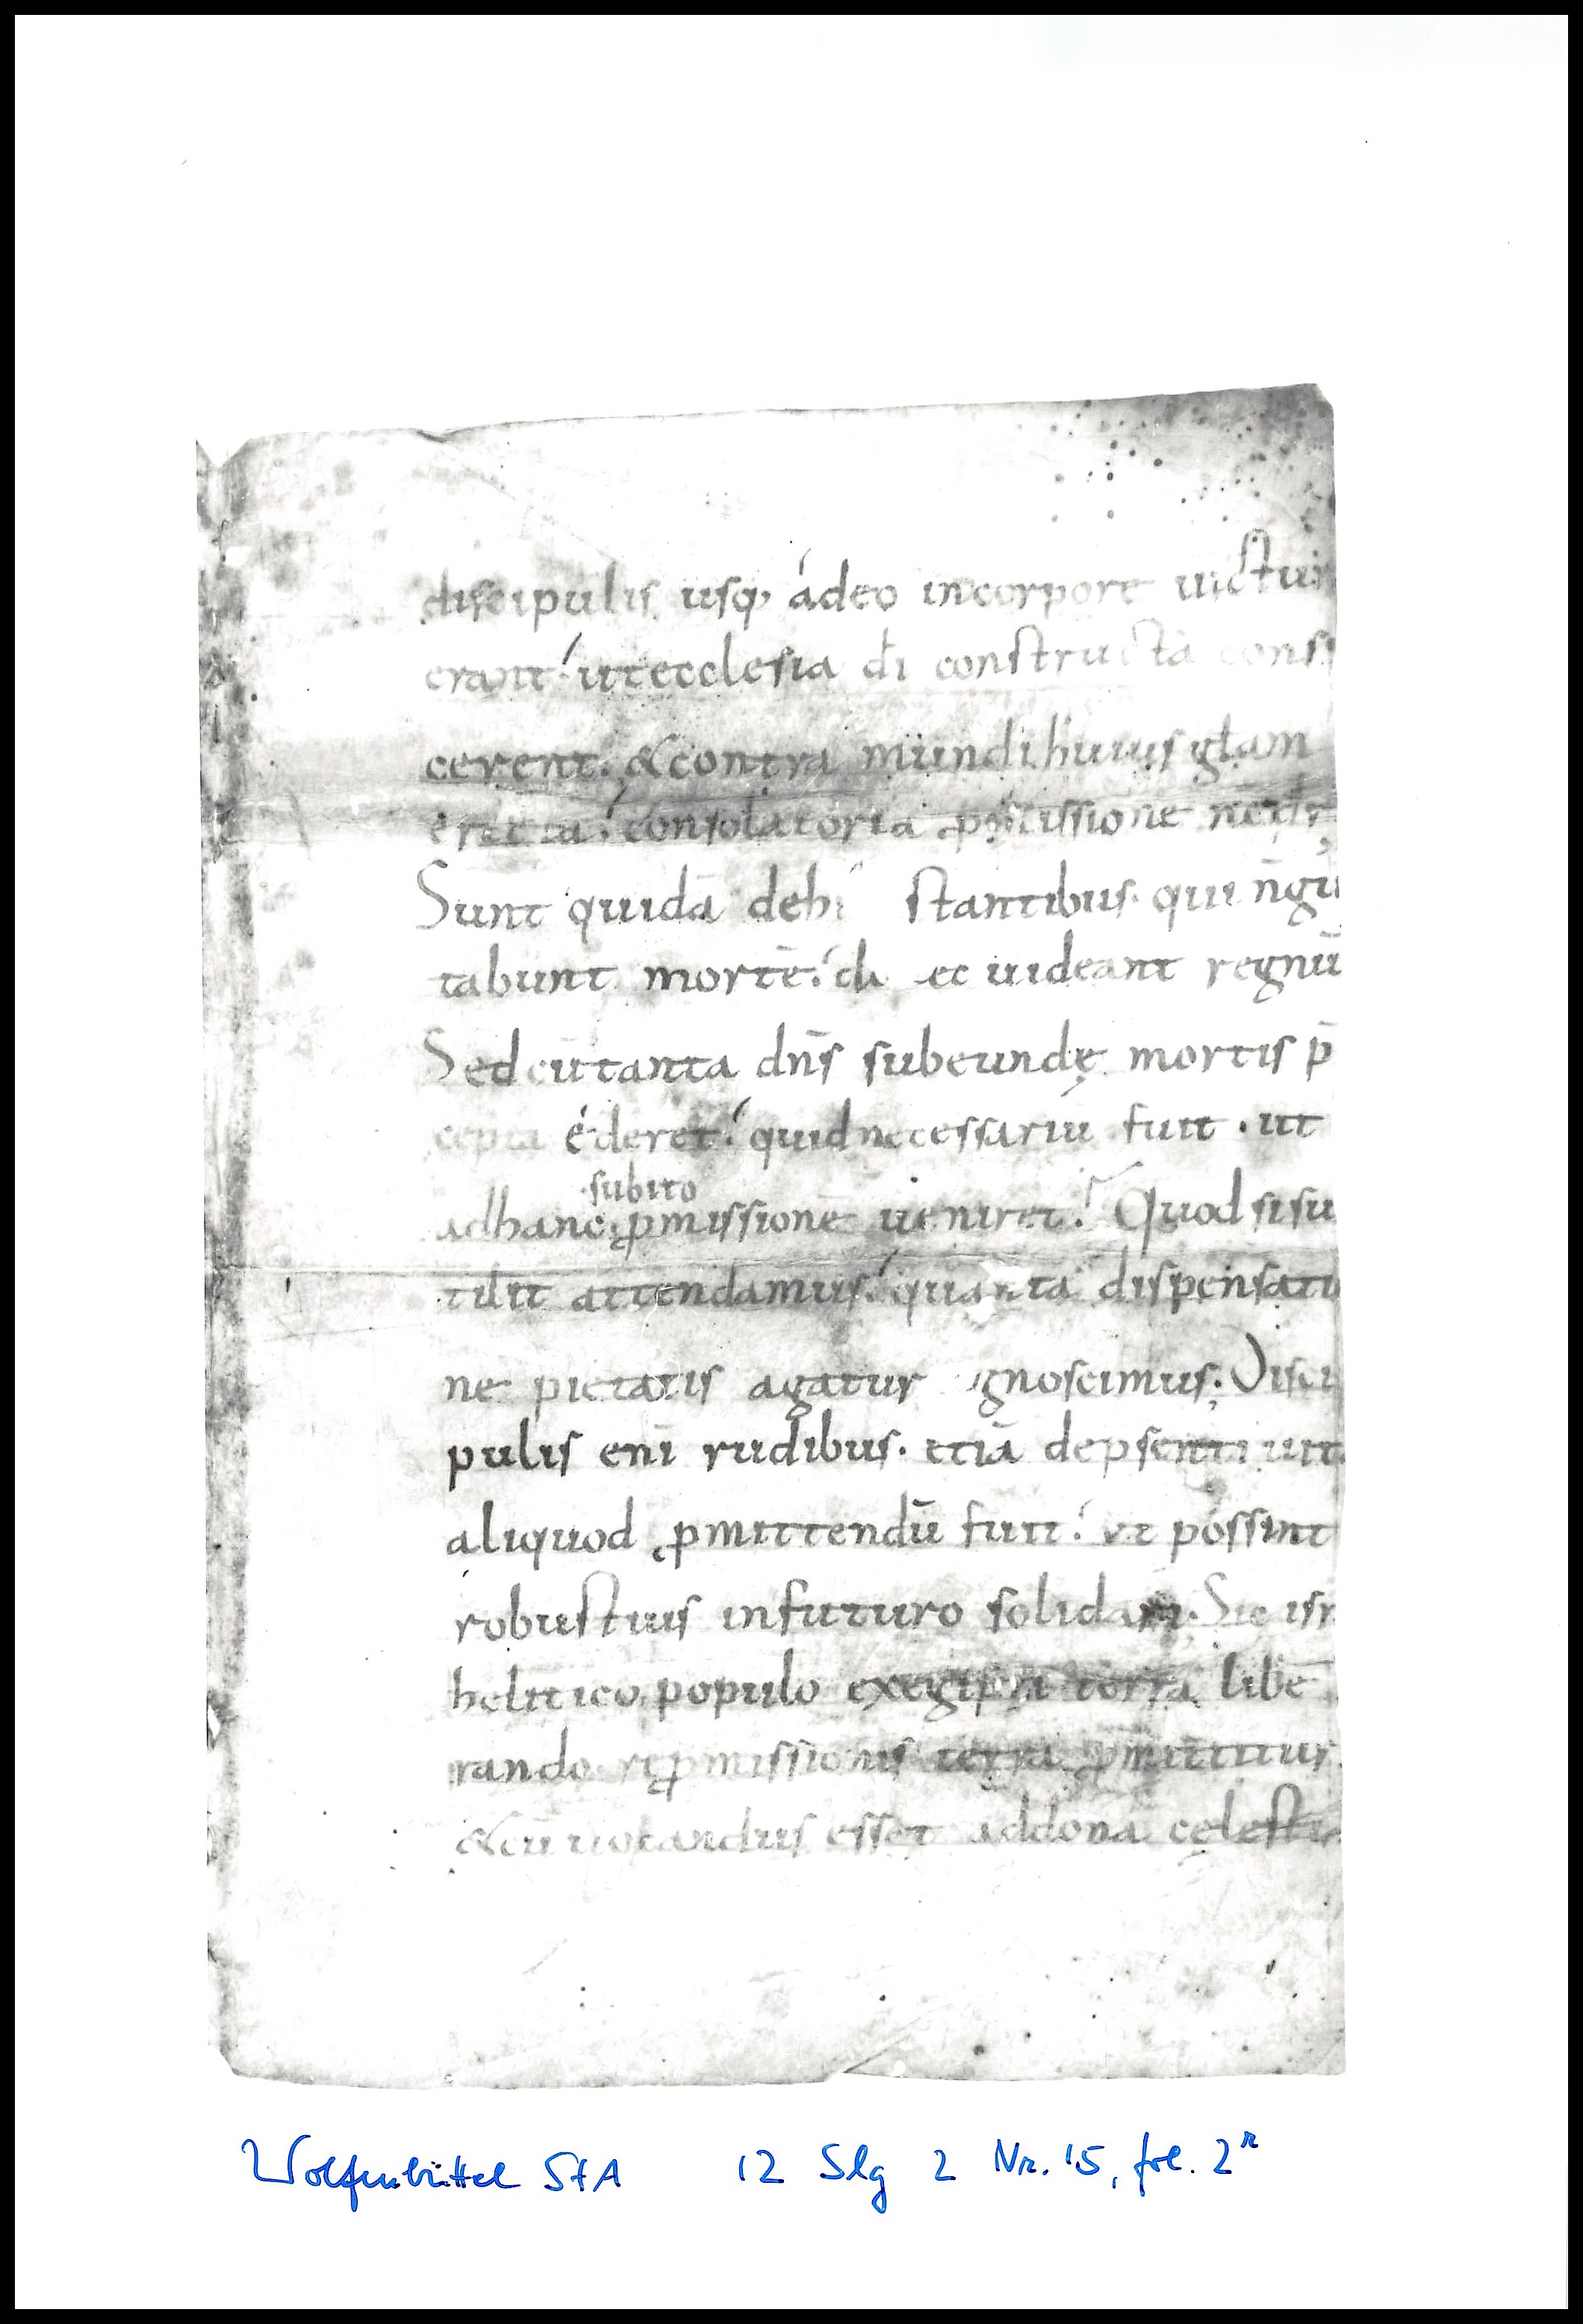 discipulis usq; adeo incorpore uictur
erant! utecclesia dī constructa consp
cerent. &contra mundi huius glam
erecta! consolatoria pmissione
Sunt quidā dehi stantibus. qui n̄ gu
tabunt mortē! d ec uideant regnū
Sed cū tanta dn̄s subeundę mortis p̄
cepta ederet! quid necessariū fuit . ut
subito
adhanc pmissionē ueniret? Quod si su
tilit attendamus! quanta dispensatio
ne pietatis agatur gnoscimus; Disci
pulis enī rudibus. etiā depsenti uit
aliquod pmittendū fuit! ut possint
robustius infuturo solidari. Sic isr
helitico populo exegipti terra libe
rando. rep missionis terra pmittitur
&cū uocandus esset addona cęlestia
Wolfenbüttel StA 12 Slg 2 Nr. 15, fol. 2r